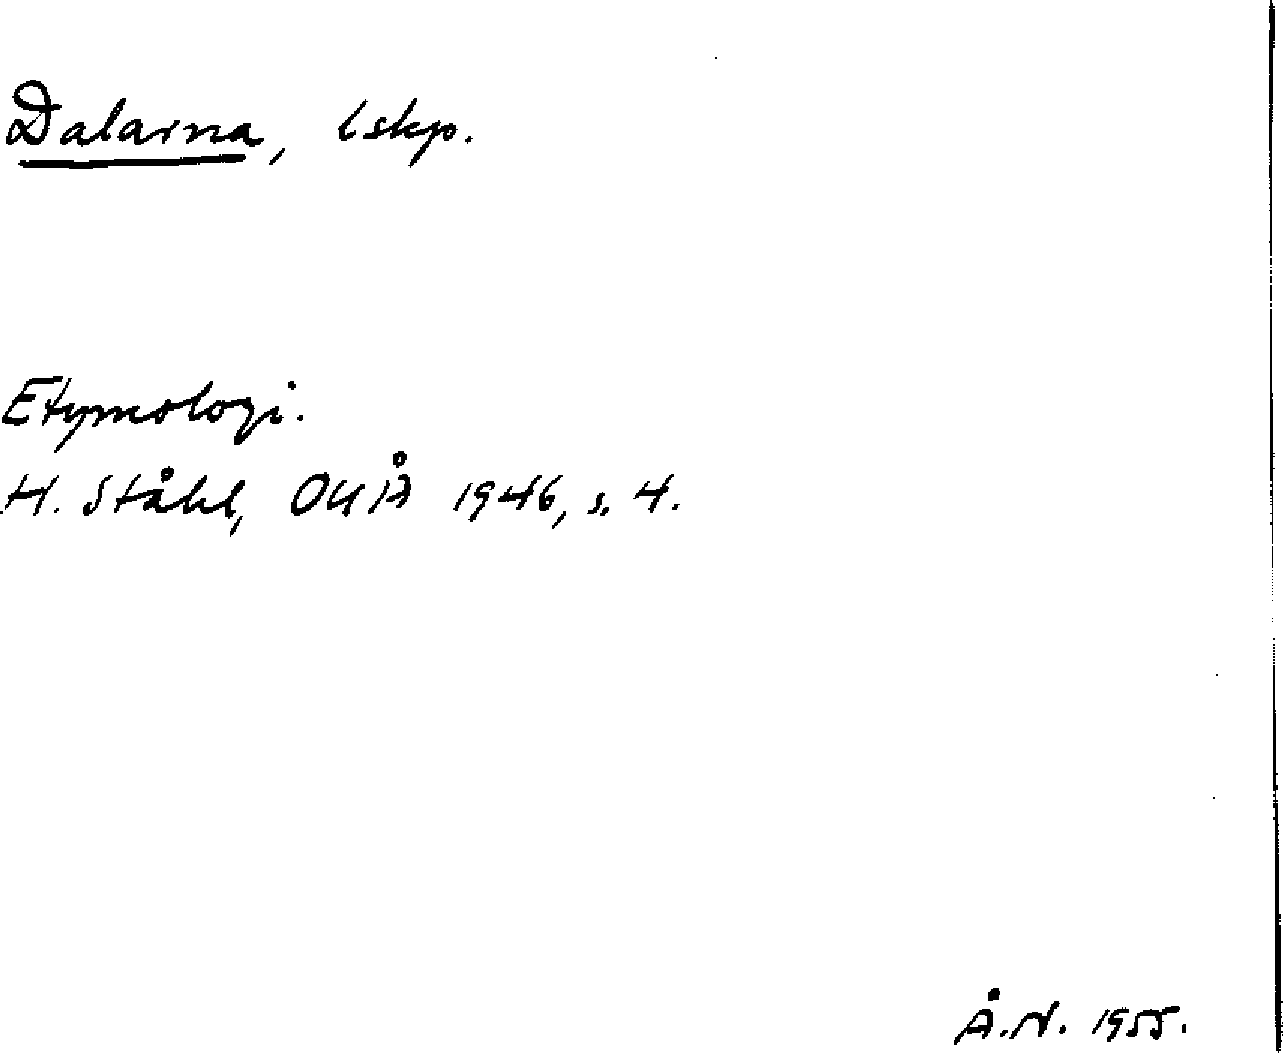 Dalarna, lskp.
Etymologi.
H. Ståhl, OUÅ 1946, s. 4.
Å.N. 1955.